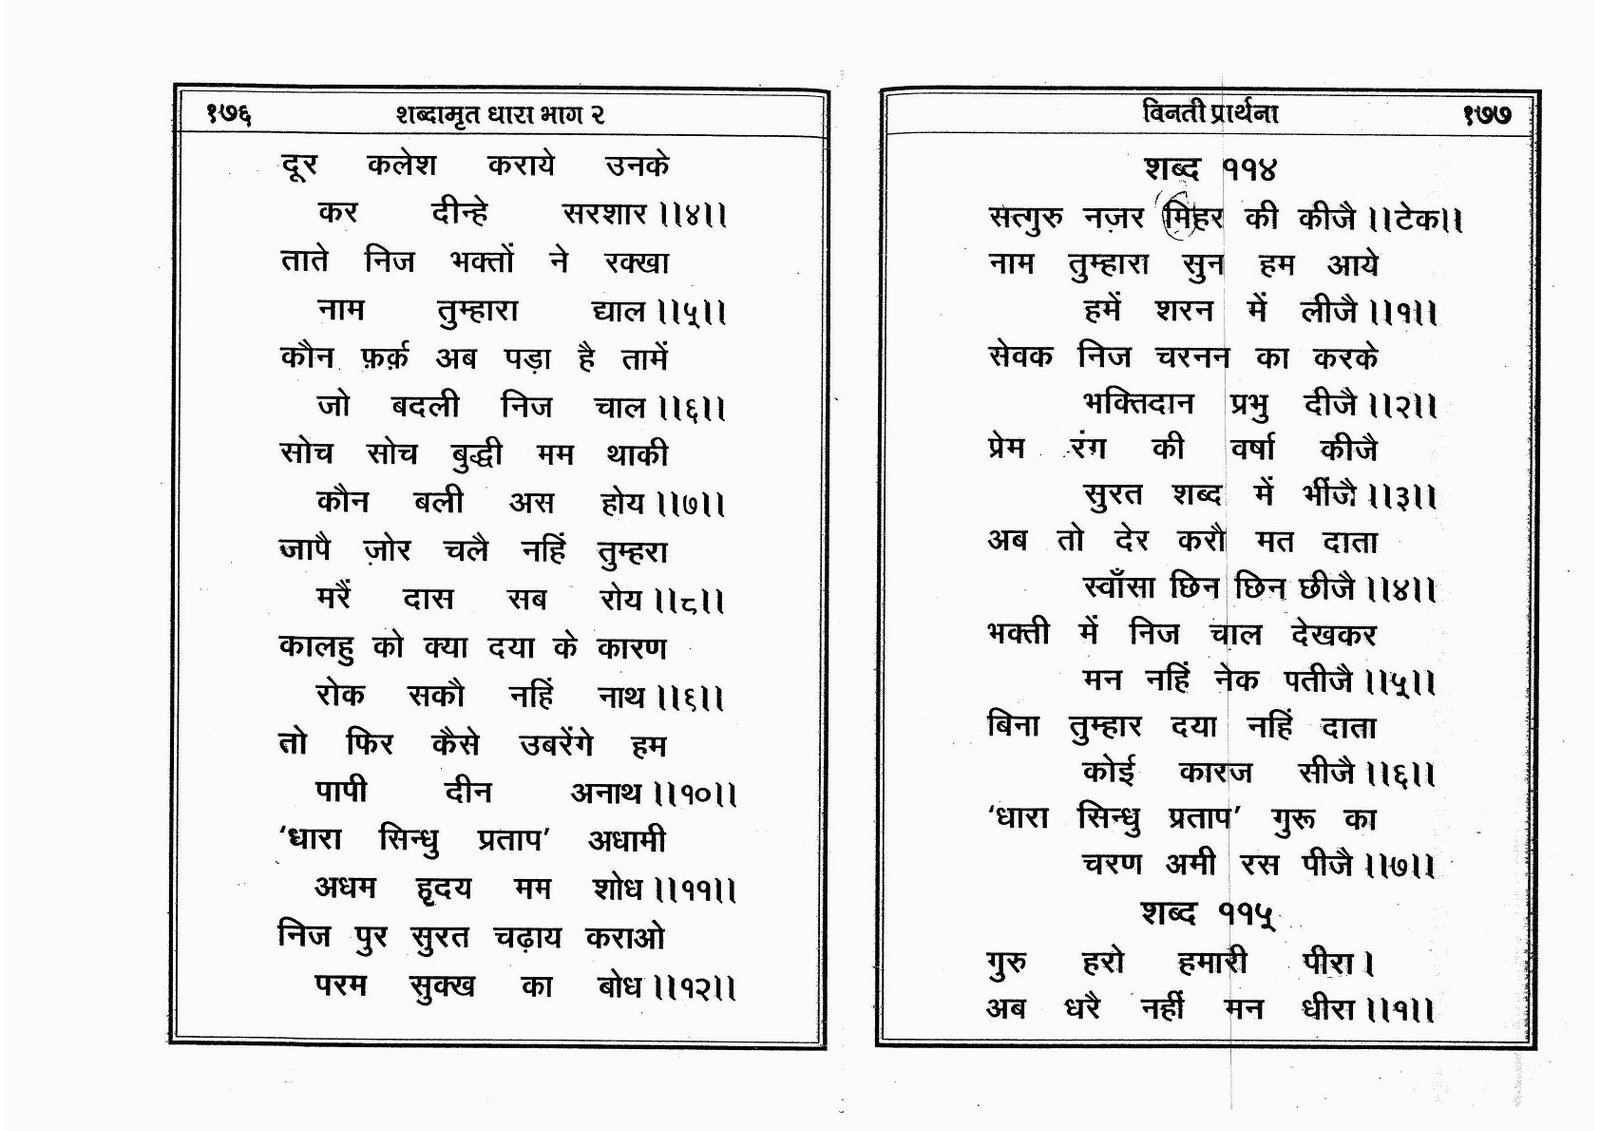 १७६ शब्दामृत धारा भाग २
दूर कलेश कराये उनके
कर दीन्हे सरशार ।।४।।
ताते निज भक्तों ने रक्खा
नाम तुम्हारा द्याल ।।५।।
कौन फ़र्क़ अब पड़ा है तामें
जो बदली निज चाल ।।६।।
सोच सोच बुद्धी मम थाकी
कौन बली अस होय ।।७।।
जापै ज़ोर चलै नहिं तुम्हरा
मरैं दास सब रोय ।।८।।
कालहु को क्या दया के कारण
रोक सकौ नहिं नाथ ।।९।।
तो फिर कैसे उबरेंगे हम
पापी दीन अनाथ ।।१०।।
‘धारा सिन्धु प्रताप’ अधामी
अधम हृदय मम शोध ।।११।।
निज पुर सुरत चढ़ाय कराओ
परम सुक्ख का बोध ।।१२।।
विनती प्रार्थना १७७
शब्द ११४
सत्गुरु नज़र मिहर की कीजै ।।टेक।।
नाम तुम्हारा सुन हम आये
हमें शरन में लीजै ।।१।।
सेवक निज चरनन का करके
भक्तिदान प्रभु दीजै ।।२।।
प्रेम रंग की वर्षा कीजै
सुरत शब्द में भींजै ।।३।।
अब तो देर करौ मत दाता
स्वाँसा छिन छिन छीजै ।।४।।
भक्ती में निज चाल देखकर
मन नहिं नेक पतीजै ।।५।।
बिना तुम्हार दया नहिं दाता
कोई कारज सीजै ।।६।।
‘धारा सिन्धु प्रताप’ गुरू का
चरण अमी रस पीजै ।।७।।
शब्द ११५
गुरु हरो हमारी पीरा ।
अब धरै नहीं मन धीरा ।।१।।